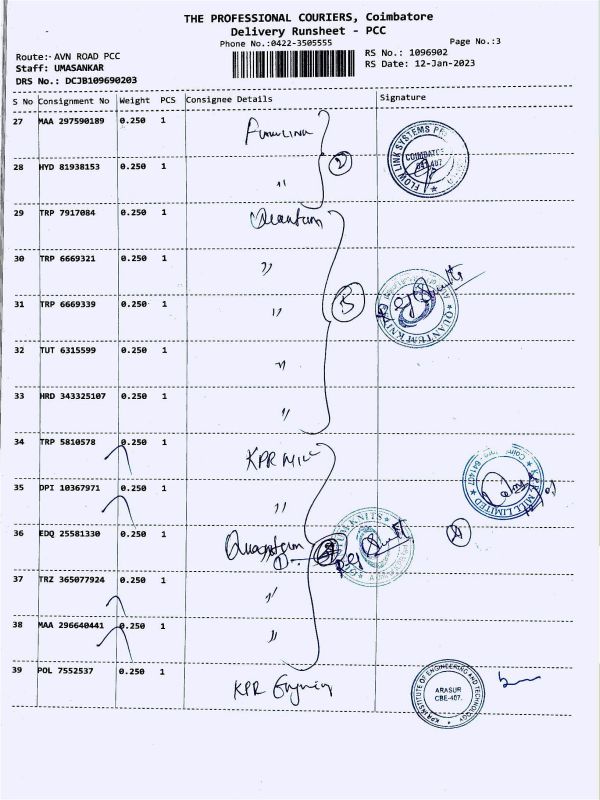 THE PROFESSIONAL COURIERS, Coimbatore
Delivery Runsheet - PCC
Phone No.:0422-3505555
Page No.:3
Route:- AVN ROAD PCC
RS No.: 1096902
Staff: UMASANKAR
RS Date: 12-Jan-2023
DRS No.: DCJB109690203
S No Consignment No Weight PCS Consignee Details Signature
27 MAA 297590189 0.250 1
28 HYD 81938153 0.250 1 "
29 TRP 7917084 0.250 1 Quantum
30 TRP 6669321 0.250 1 "
31 TRP 6669339 0.250 1 " 5
32 TUT 6315599 0.250 1 "
33 HRD 343325107 0.250 1 "
34 TRP 5810578 0.250 1 KPR Mill
35 DPI 10367971 0.250 1 "
KPR MILL LIMITED 641407
36 EDQ 25581330 0.250 1 Quantum
37 TRZ 365077924 0.250 1 "
38 MAA 296640441 0.250 1 "
39 POL 7552537 0.250 1 KPR
FLOW LINK SYSTEMS
QUANTUM KNITS
KPR INSTITUTE OF ENGINEERING AND TECHNOLOGY
ARASUR
CBE-407.